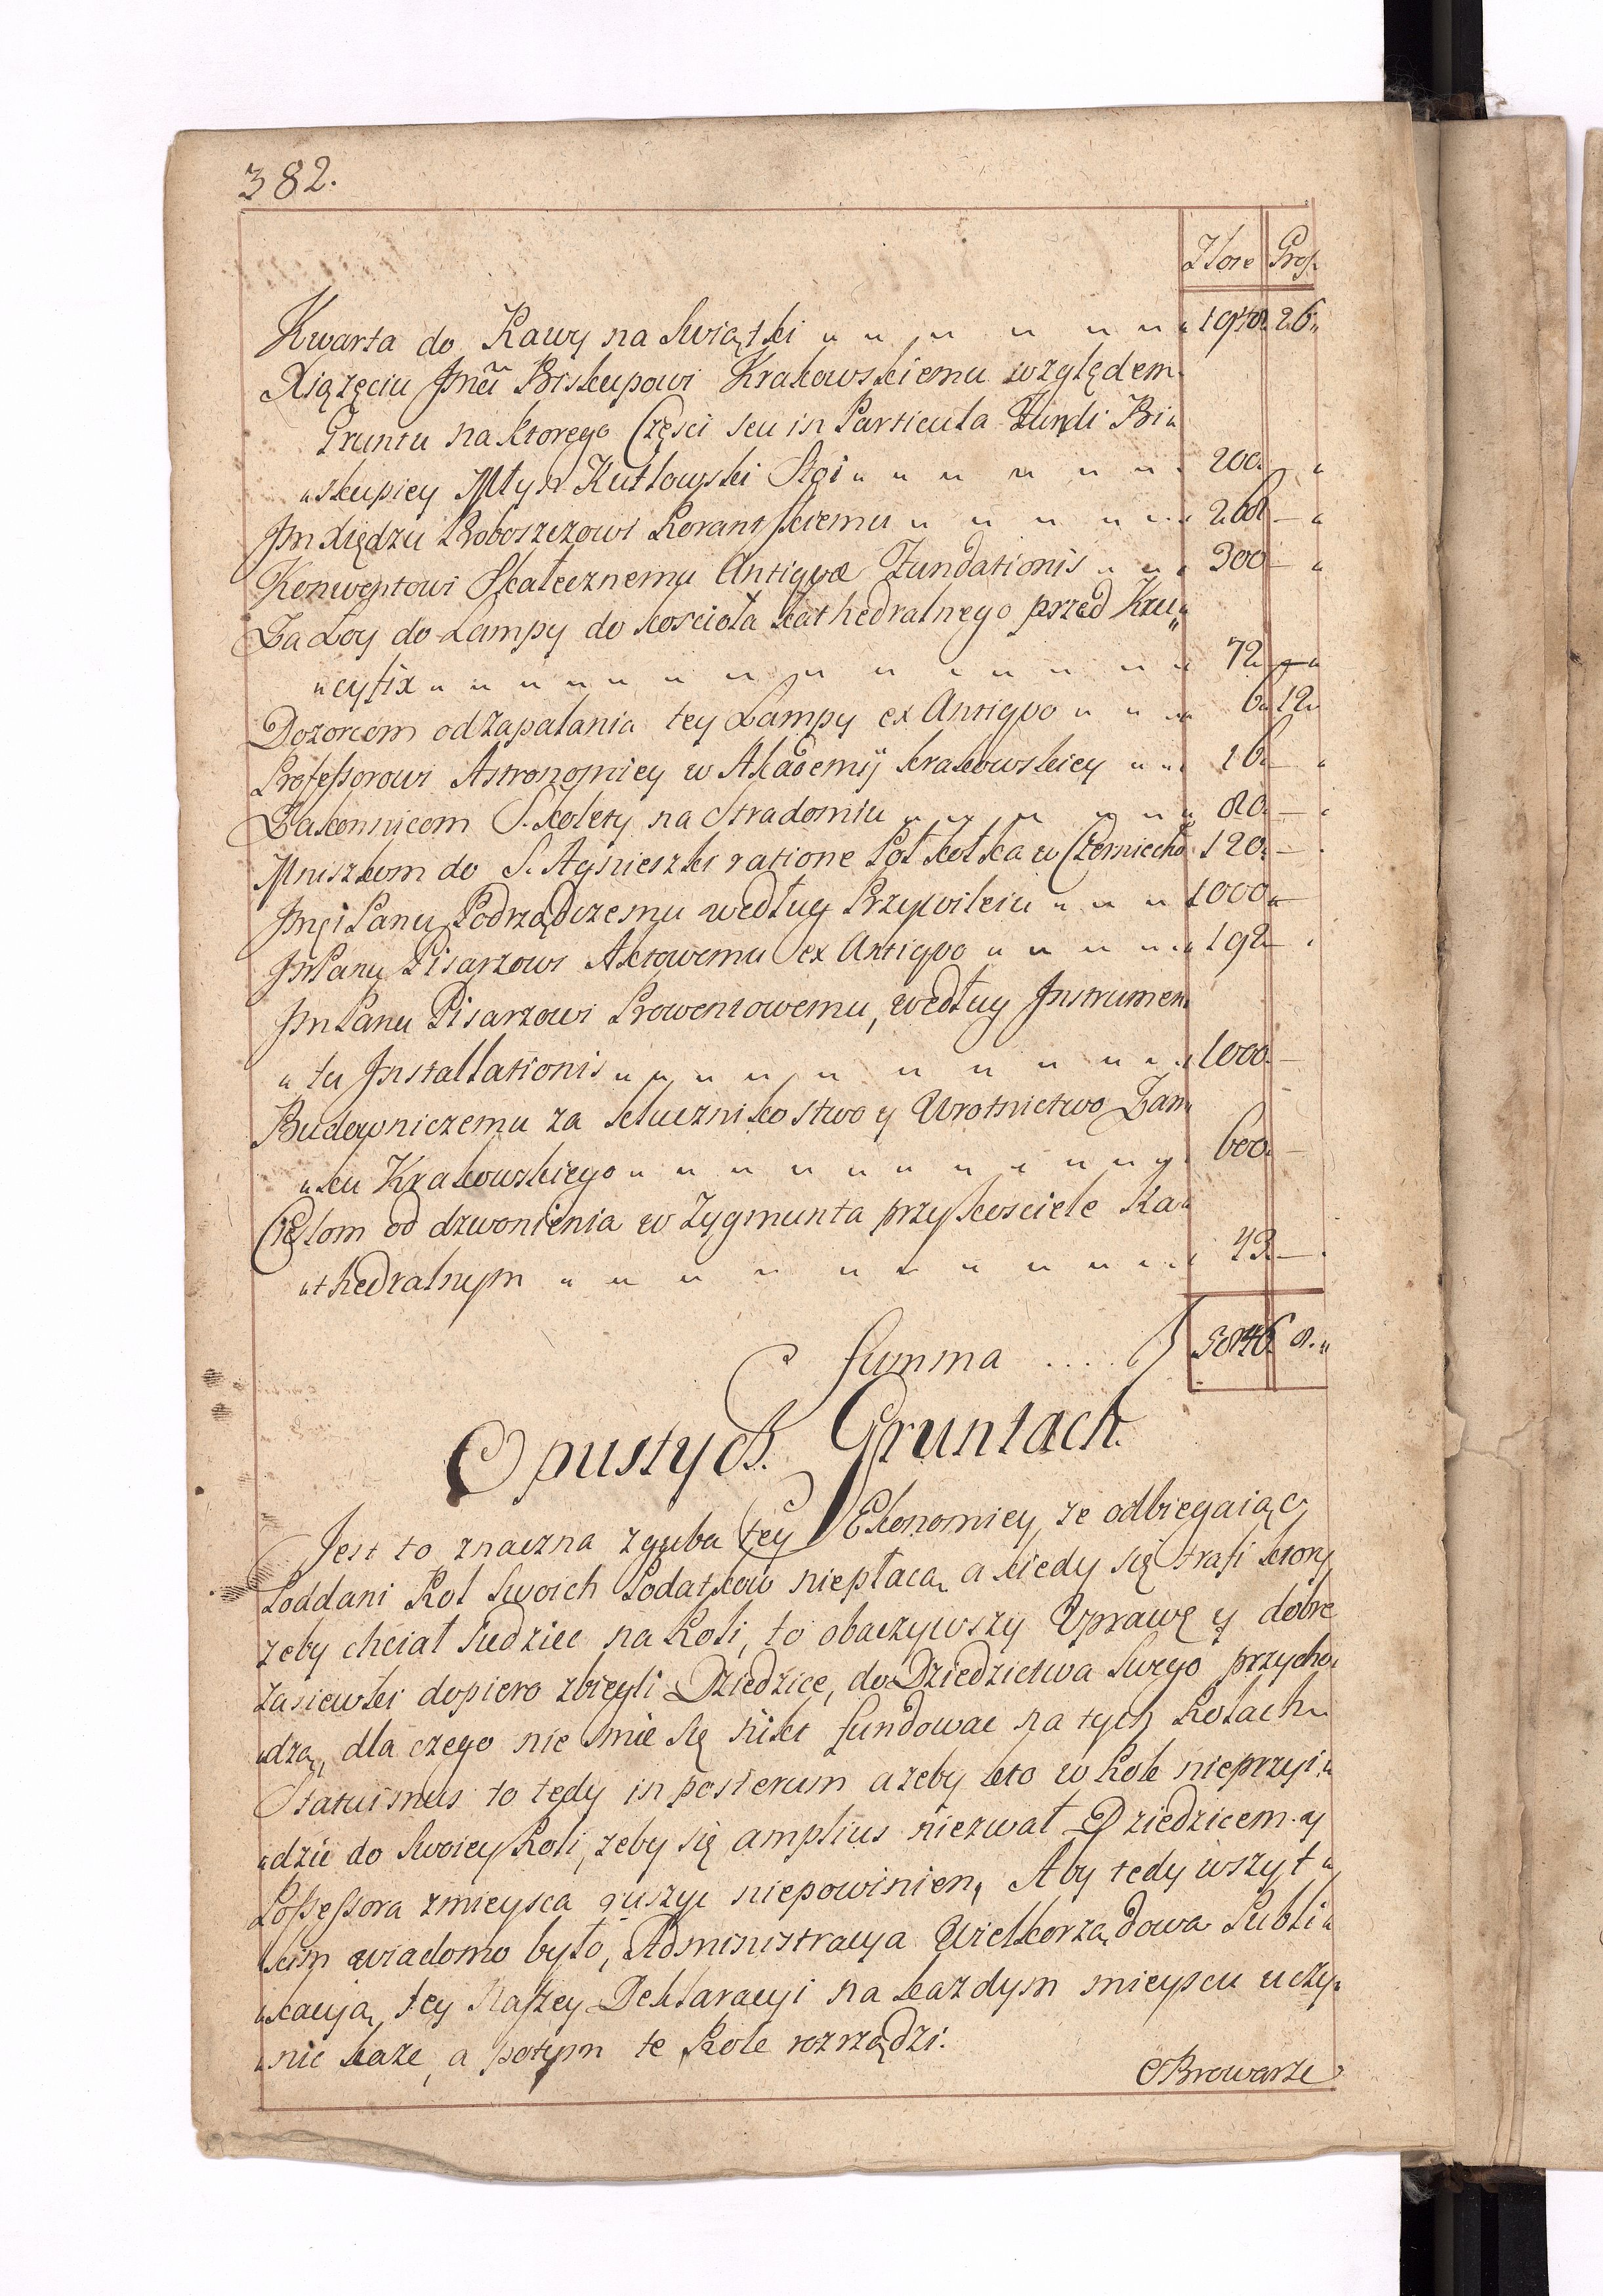 382.
Złote Gros.
Kwarta do Rawy na Swiątki 26
Xiążęciu Jmci Biskupowi Krakowskiemu względem
Gruntu na ktorego Części seu in Particula Fundi Bi„
„skupiey Młyn Kutłowski Stoi 200 —
Jm Xiędzu Proboszczowi Rorantskiemu 268 —
Konwentowi Skałecznemu Antiquæ Fundationis 300 —
Za Łoy do Lampy do koscioła kathedralnego przed Kru„
„cyfix 72 —
Dozorcom od zapalania tey Lampy ex Antiquo 6 12
Professorowi Astronomiey w Akademij krakowskiey 16 —
Zakonnicom S. kolety na Stradomiu 80 —
Mniszkom do S. Agnieszki ratione Poł kotka w Czernicho 120 —
Jmci Panu Podrządczemu według Przywileiu 1000 —
Jm Panu Pisarzowi Aktowemu ex Antiquo 192 —
Jm Panu Pisarzowi Prowentowemu, według Instrumen„
„tu Installationis 1000 —
Budowniczemu za klucznikostwo y Wrotnictwo Zam„
„ku Krakowskiego 600 —
Cieslom od dzwonienia w Zygmunta przy kosciele Ka„
„thedralnym 43 —
Summa .... 5846 8
O pustych Gruntach.
Jest to znaczna zguba tey Ekonomiey, ze odbiegaiąc
Poddani Rol Swoich Podatkow niepłacą a kiedy się trafi ktory
zeby chciał Siedziec na Roli, to obaczywszy Uprawę y dobre
zasiewki dopiero zbiegli Dziedzice, do Dziedzictwa Swego przycho„
„dzą, dla czego nie smie się nikt fundowac na tych Rolach
Statuimus to tedy in posterum azeby kto w Role nieprzyi„
„dzie do Swoiey Roli, zeby się amplius niezwał Dziedzicem y
Possessora z mieysca ruszyc niepowinien, Aby tedy wszyt„
„kim wiadomo było, Administracya Wielkorządowa Publi„
„kacyją, tey Naszey Deklaracyi na kazdym mieyscu uczy„
„nic kaze, a potym te Role rozrządzi.
O Browarze